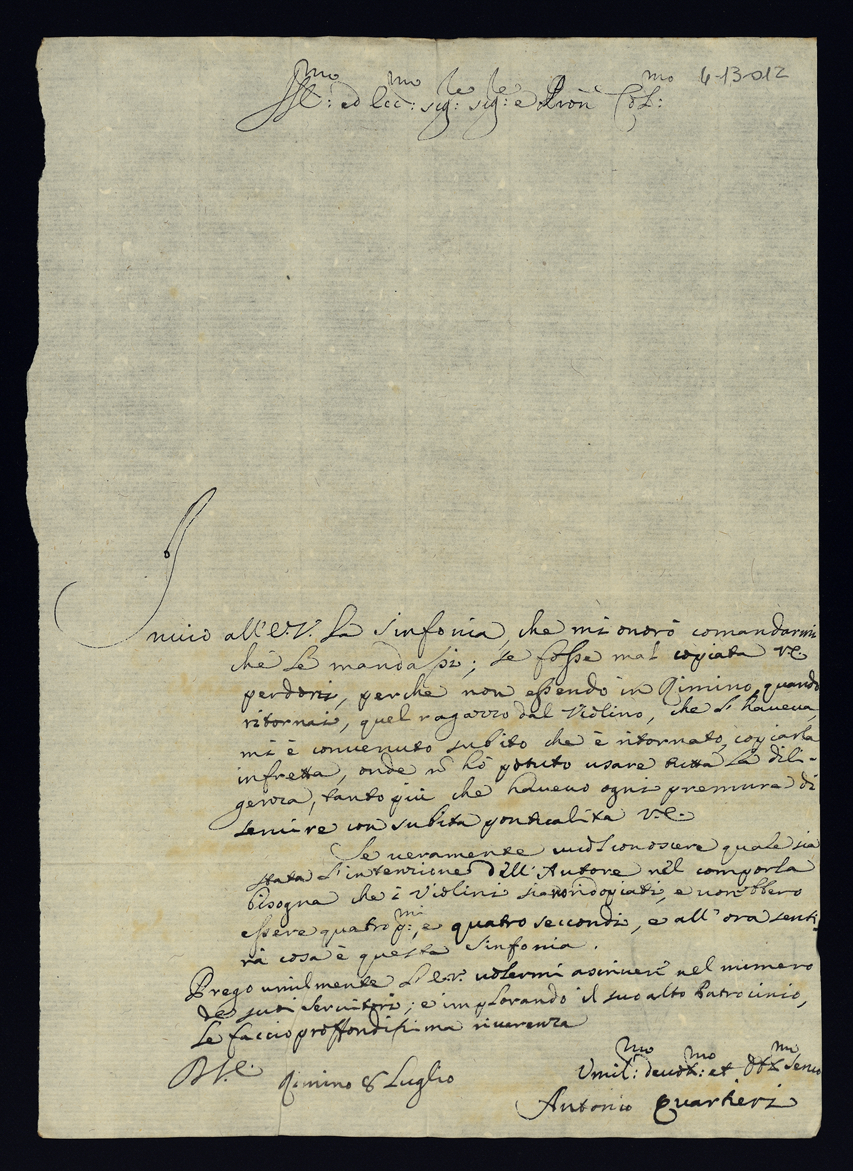 6-13-012
Ill:mo ed Ecc:mo sig:re sig:re e Pron Col:mo
Inuio all'E.V. La Sinfonia, che mi onorò comandarmi
che Le mandassi; se fosse mal copiata V.E.
perdoni, perche non essendo in Rimino, quando
ritornai, quel ragazzo dal Violino, che L'haueua,
mi è conuenuto subito che è ritornato, copiarla
infretta, onde n̄ hò potuto usare tutta La dili-
genza, tanto più che haueuo ogni premura di
seruire con subita pontualità V.E.
Se ueramente uuol conoscere quale sia
stata L'intenzione dell'Autore nel comporla
bisogna che i Violini siano ridopiati, e uorebbero
essere quatro p:mi, e quatro secondi, e all'ora senti-
rà cosa è questa Sinfonia.
Prego umilmente L'E.V. uolermi ascriuere nel numero
de suoi Seruitori; e implorando il suo alto Patrocinio,
Le faccio proffondissima riuerenza
D.V.E. Rimino 8 Luglio
Vmil:mo deuot:mo et Obl:mo Seruo
Antonio Quartieri